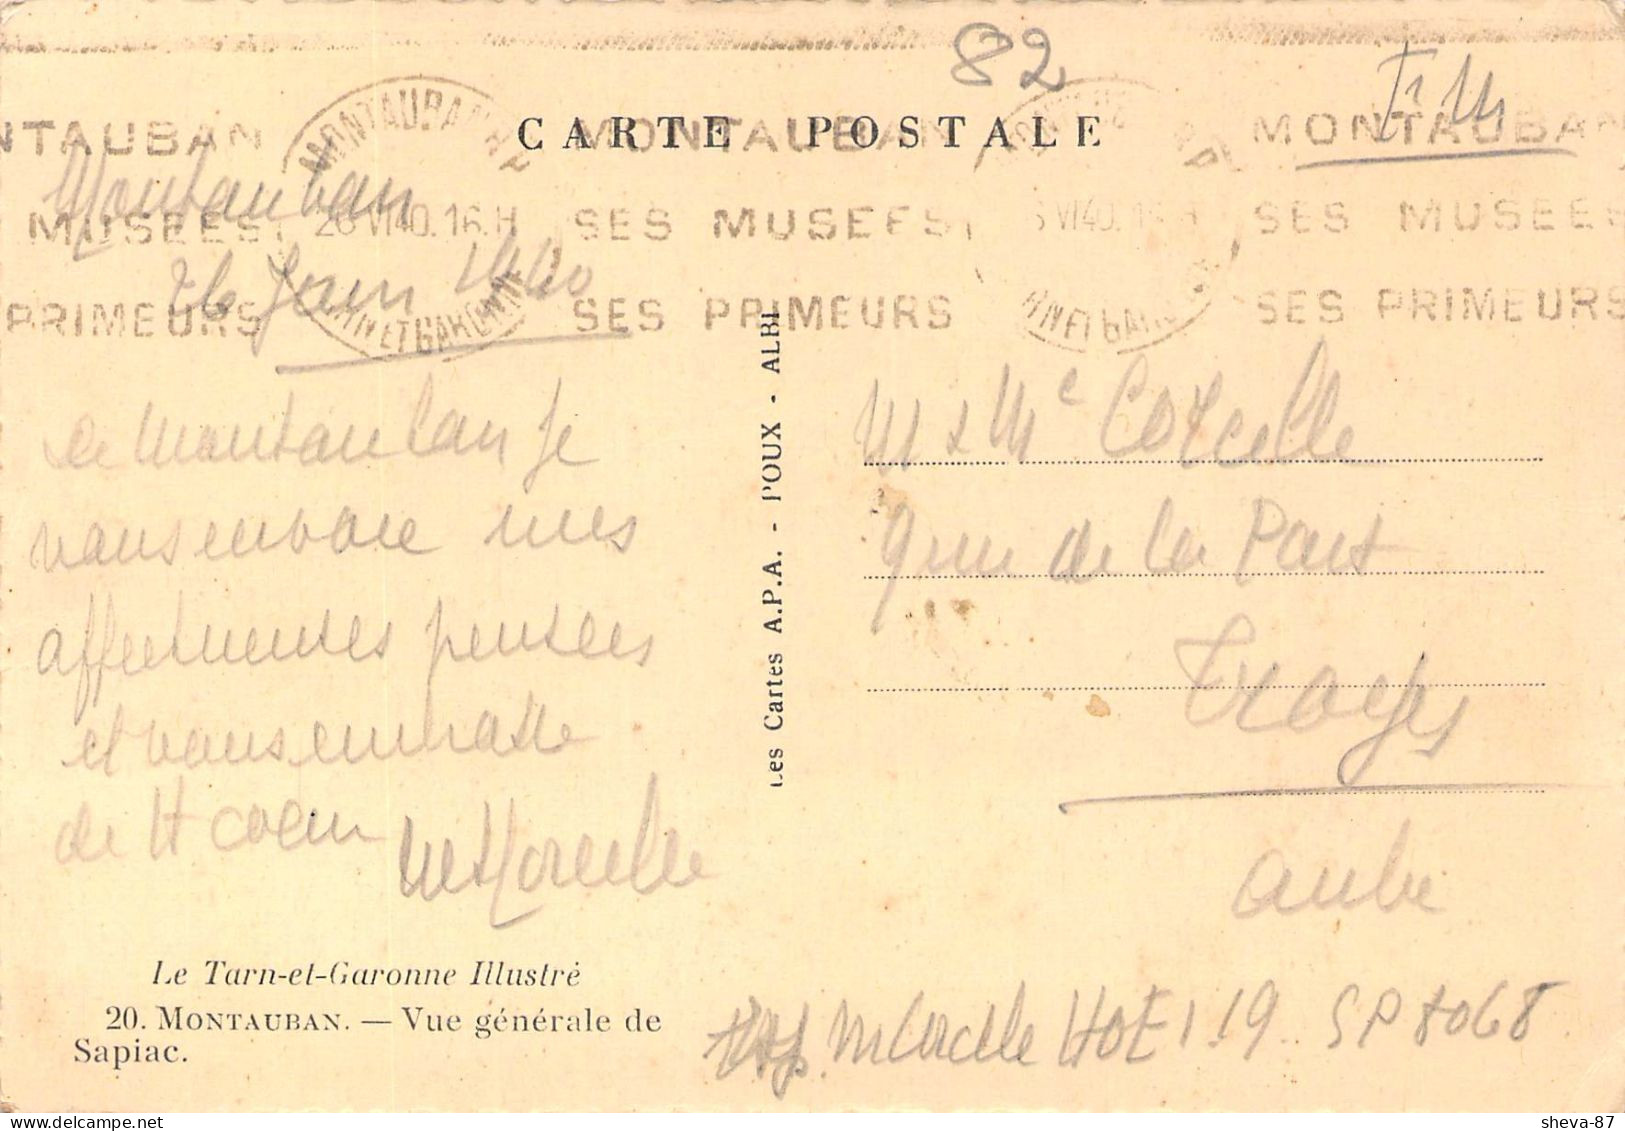 82
F. M
CARTE POSTALE
NTAUBAN
MUSEES,
PRIMEURS
MONTAUBAN
26 VI 40. 16.H
TARN ET GARONNE
MONTAUBAN
SES MUSEES,
SES PRIMEURS
MONTAUBAN
SES MUSEES
SES PRIMEURS
Montauban
26 Juin 1940
de Montauban je
vous envoie mes
affectueuses pensees
et vous embrasse
de tt coeur
M & Me Corcelle
9 rue de la Paix
Troyes
Aube
Les Cartes A.P.A. - POUX - ALBI
Le Tarn-et-Garonne Illustré
20. MONTAUBAN. — Vue générale de
Sapiac.
Exp. M Corcelle HOE 1.19 SP 8068
sheva-87